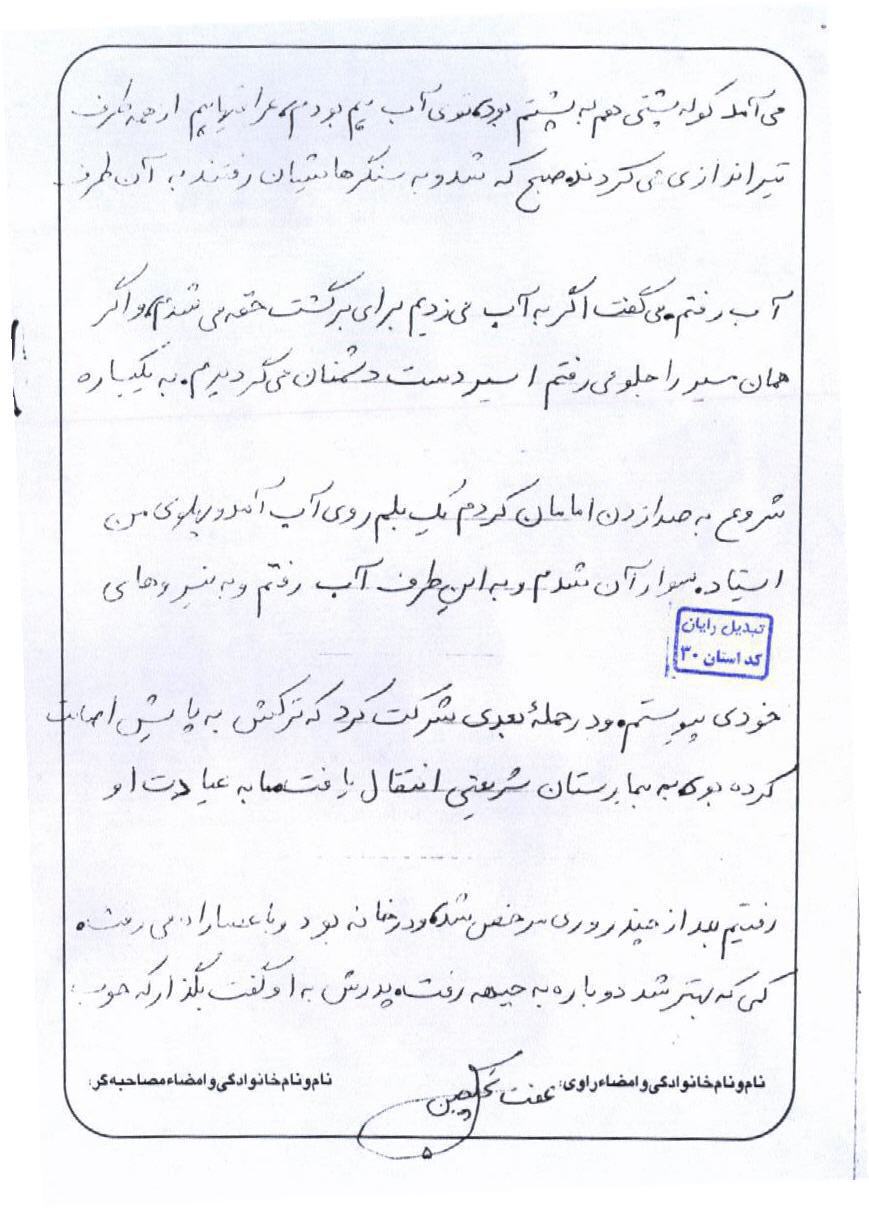 می‌آمد کوله پشتی هم به پشتم بود، توی آب هم بودم، عراقیها هم از همه طرف
تیراندازی می‌کردند. صبح که شد و به سنگرهایشان رفتند به آن طرف
آب رفتم. می‌گفت اگر به آب می‌زدیم برای برگشت خفه می‌شدم، و اگر
همان مسیر را جلو می‌رفتم اسیر دست دشمنان می‌گردیدم. به یکباره
شروع به صدا زدن امامان کردم یک بلم روی آب آمد و پهلوی من
استاد. سوار آن شدم و به این طرف آب رفتم و به نیروهای
تبدیل رایان
کد استان ۳۰
خودی پیوستم. و در حملهٔ بعدی شرکت کرد که ترکش به پایش اصابت
کرده بود، به بیمارستان شریعتی انتقال یافت. ما به عیادت او
رفتیم بعد از چند روزی مرخص شد، و در خانه بود و با عصا راه می‌رفت.
کمی که بهتر شد دوباره به جبهه رفت. پدرش به او گفت بگذار که خوب
نام و نام خانوادگی و امضاء راوی: عفت
نام و نام خانوادگی و امضاء مصاحبه‌گر:
۵